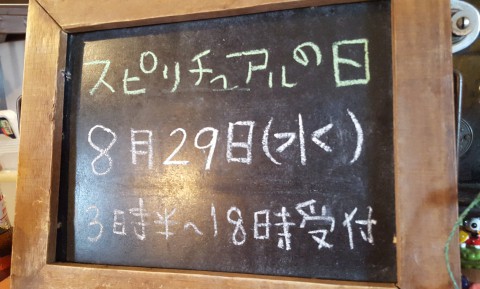 スピリチュアルの日
8月29日(水)
3時半~18時受付